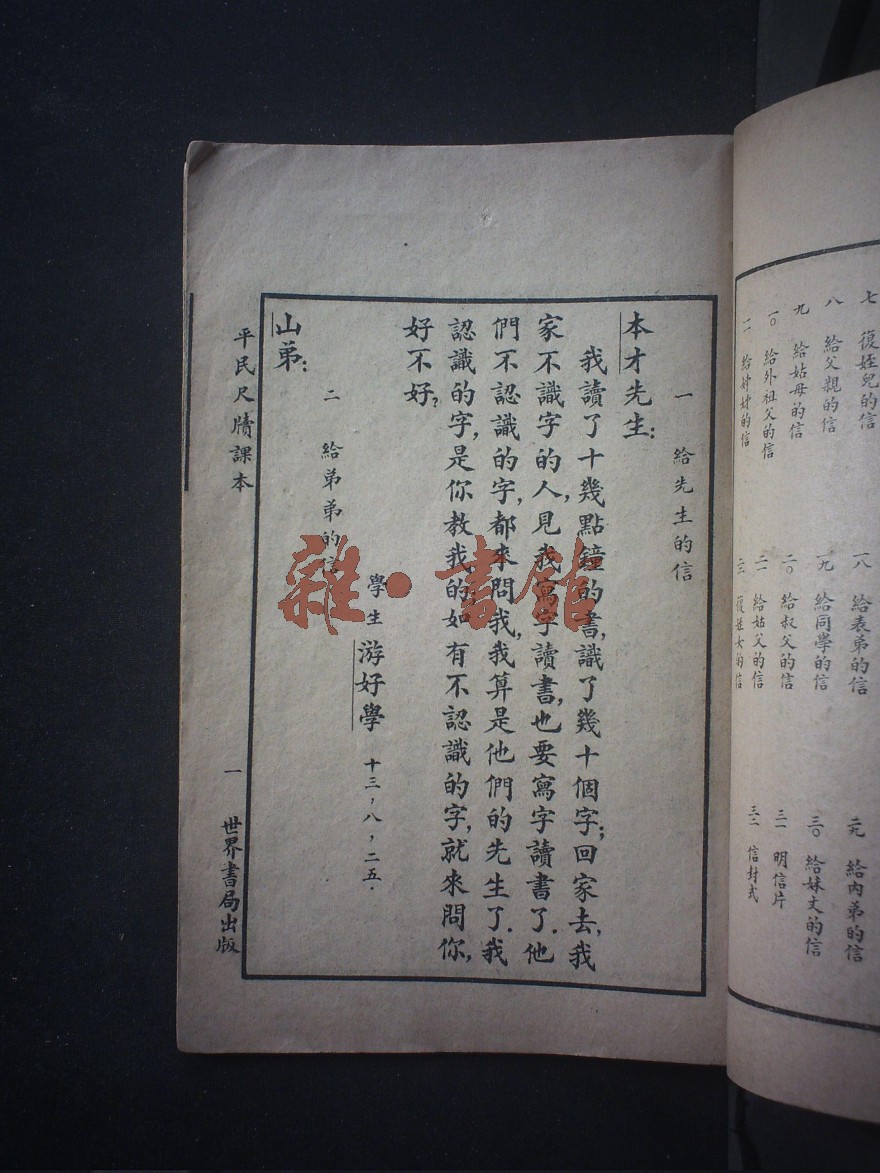 七 復姪兒的信 一八 給表弟的信 二九 給內弟的信
八 給父親的信 一九 給同學的信 三〇 給妹丈的信
九 給姑母的信 二〇 給叔父的信 三一 明信片
一〇 給外祖父的信 二一 給姑父的信 三二 信封式
一一 給姊姊的信 二二 復姪女的信
一 給先生的信
本才先生:
我讀了十幾點鐘的書,識了幾十個字;回家去,我
家不識字的人,見我寫字讀書,也要寫字讀書了.他
們不認識的字,都來問我,我算是他們的先生了.我
認識的字,是你教我的,如有不認識的字,就來問你,
好不好?
學生游好學 十三,八,二五.
二 給弟弟的信
山弟:
平民尺牘課本 一 世界書局出版
雜·書館